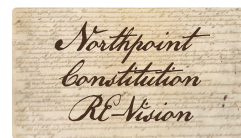 Northpoint
Constitution
RE-Vision